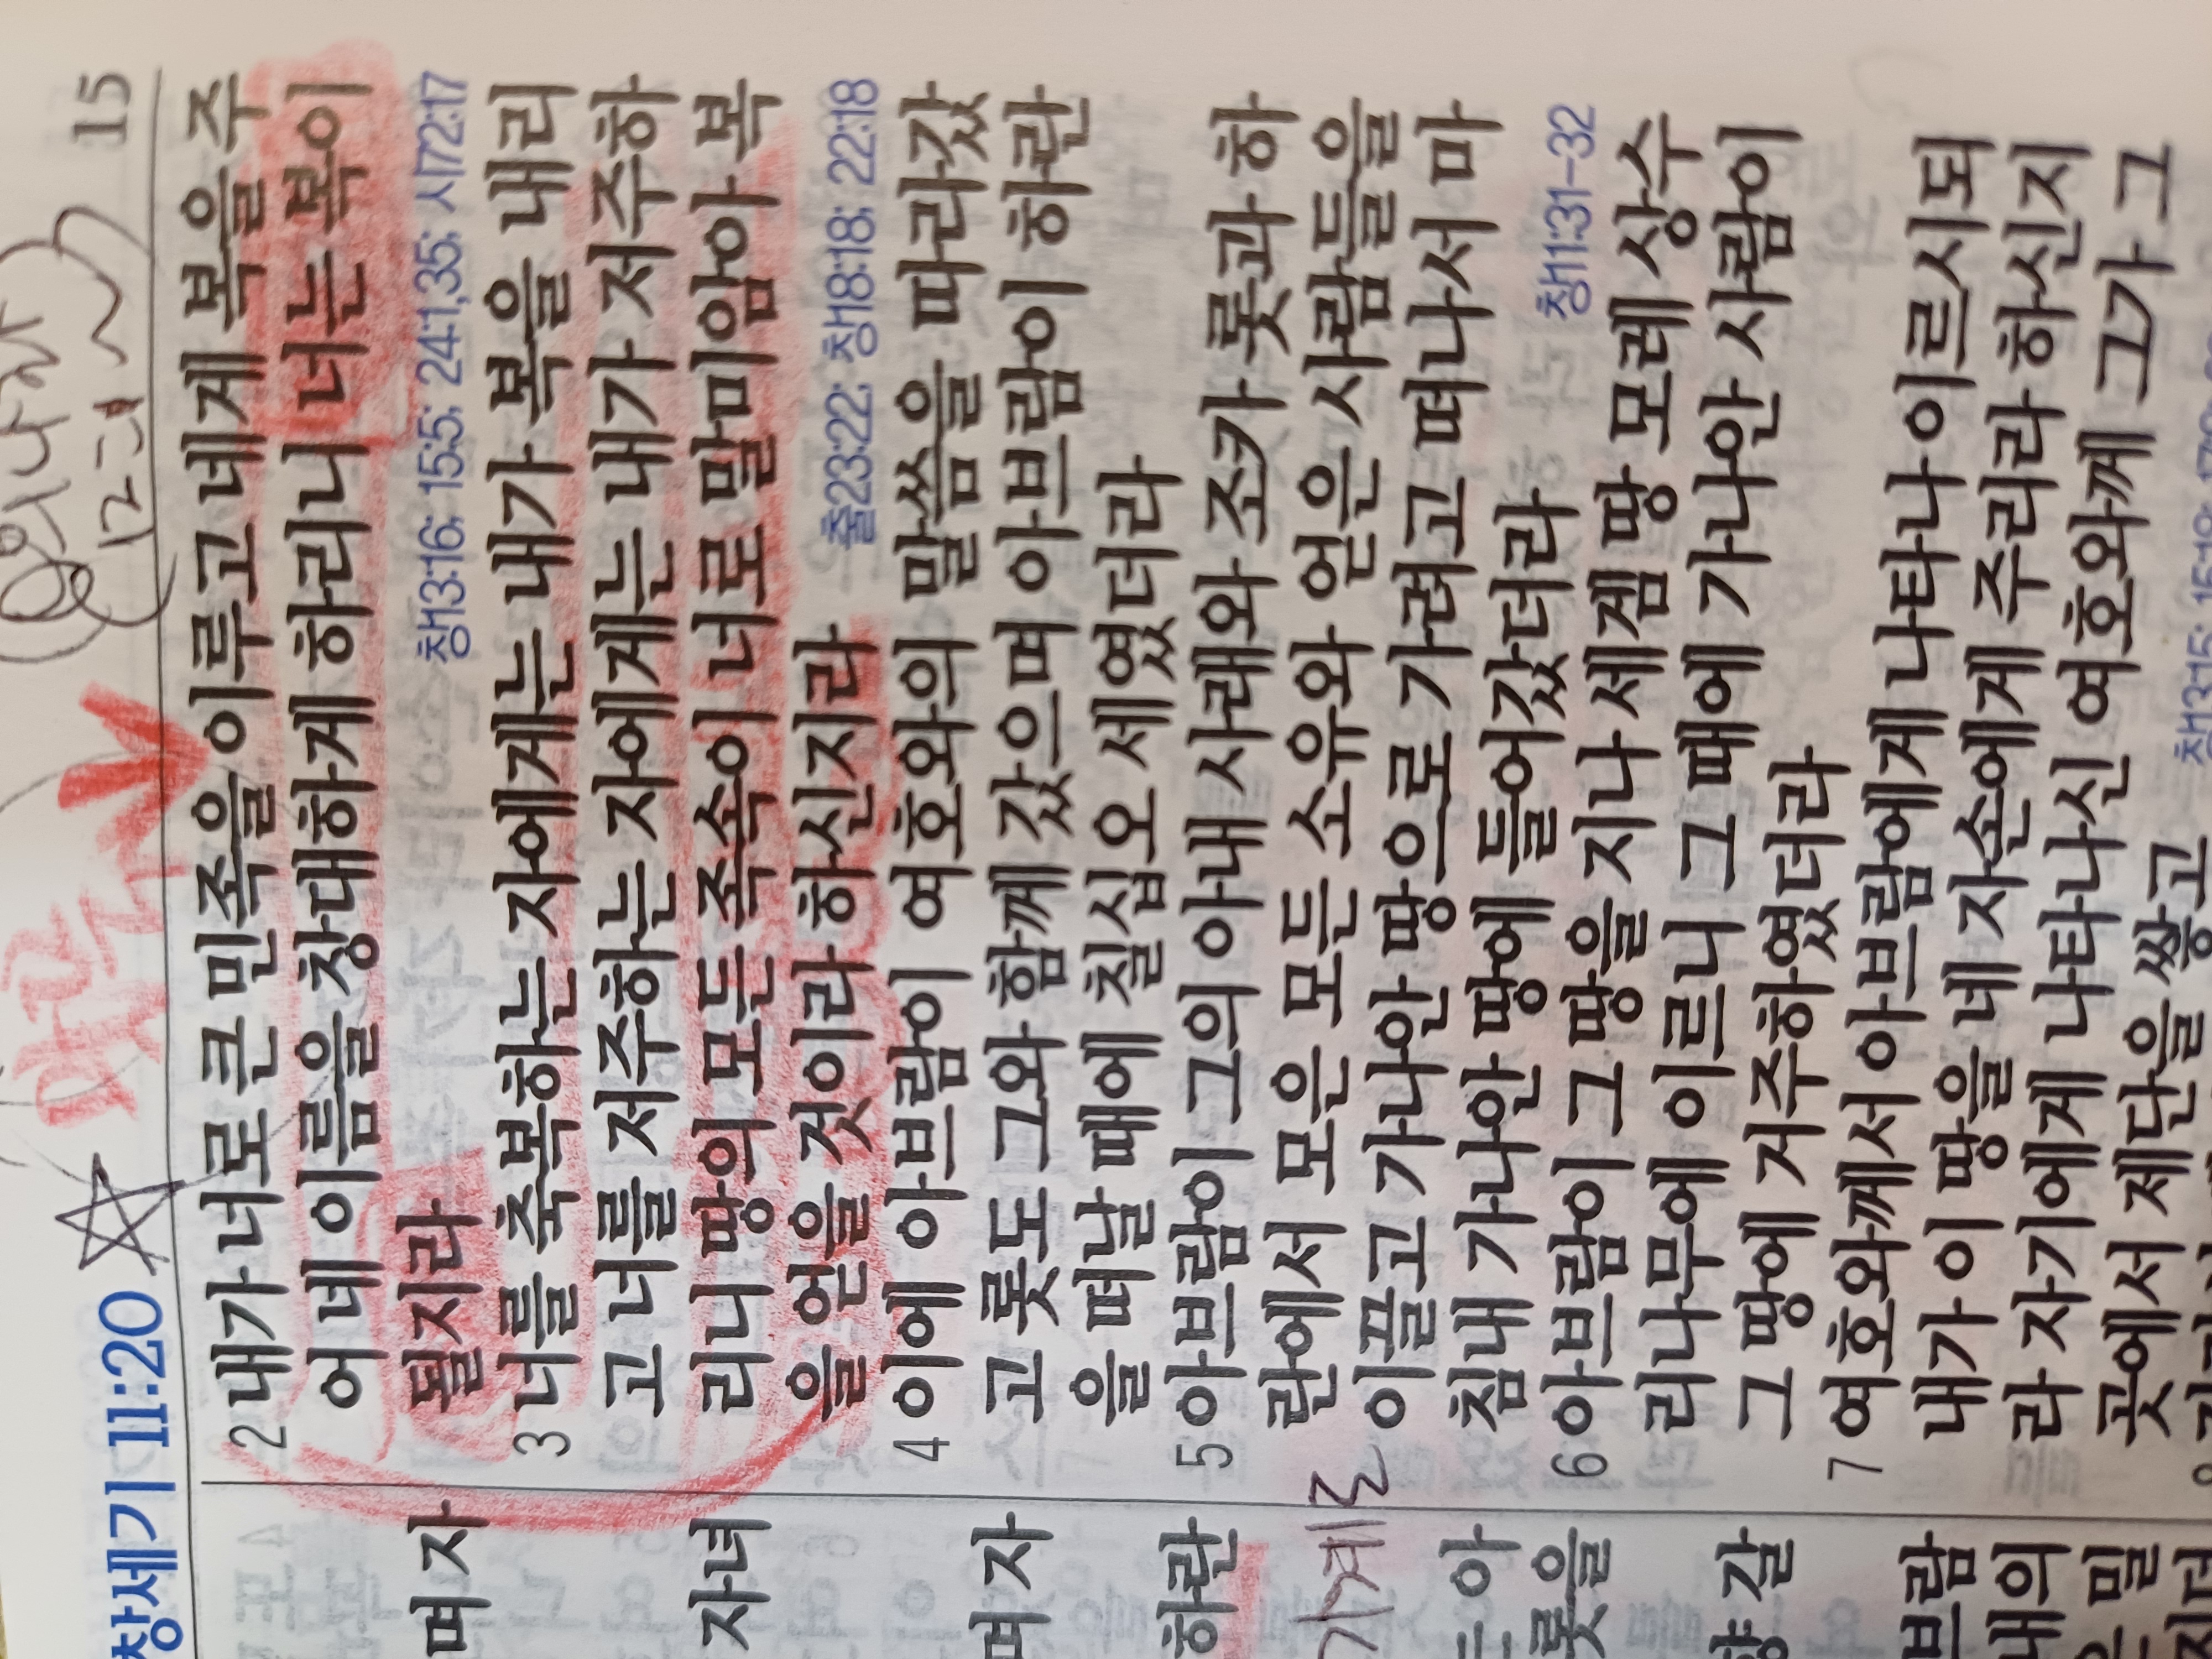 창세기 11:20
15
2 내가 너로 큰 민족을 이루고 네게 복을 주
어 네 이름을 창대하게 하리니 너는 복이
될지라
창13:16; 15:5; 24:1,35; 시72:17
3 너를 축복하는 자에게는 내가 복을 내리
고 너를 저주하는 자에게는 내가 저주하
리니 땅의 모든 족속이 너로 말미암아 복
을 얻을 것이라 하신지라
출23:22; 창18:18; 22:18
4 이에 아브람이 여호와의 말씀을 따라갔
고 롯도 그와 함께 갔으며 아브람이 하란
을 떠날 때에 칠십오 세였더라
5 아브람이 그의 아내 사래와 조카 롯과 하
란에서 모은 모든 소유와 얻은 사람들을
이끌고 가나안 땅으로 가려고 떠나서 마
침내 가나안 땅에 들어갔더라
창11:31-32
6 아브람이 그 땅을 지나 세겜 땅 모레 상수
리나무에 이르니 그 때에 가나안 사람이
그 땅에 거주하였더라
7 여호와께서 아브람에게 나타나 이르시되
내가 이 땅을 네 자손에게 주리라 하신지
라 자기에게 나타나신 여호와께 그가 그
곳에서 제단을 쌓고
며 자
자녀
며 자
하란
롯을
갈
브람
내의
밀